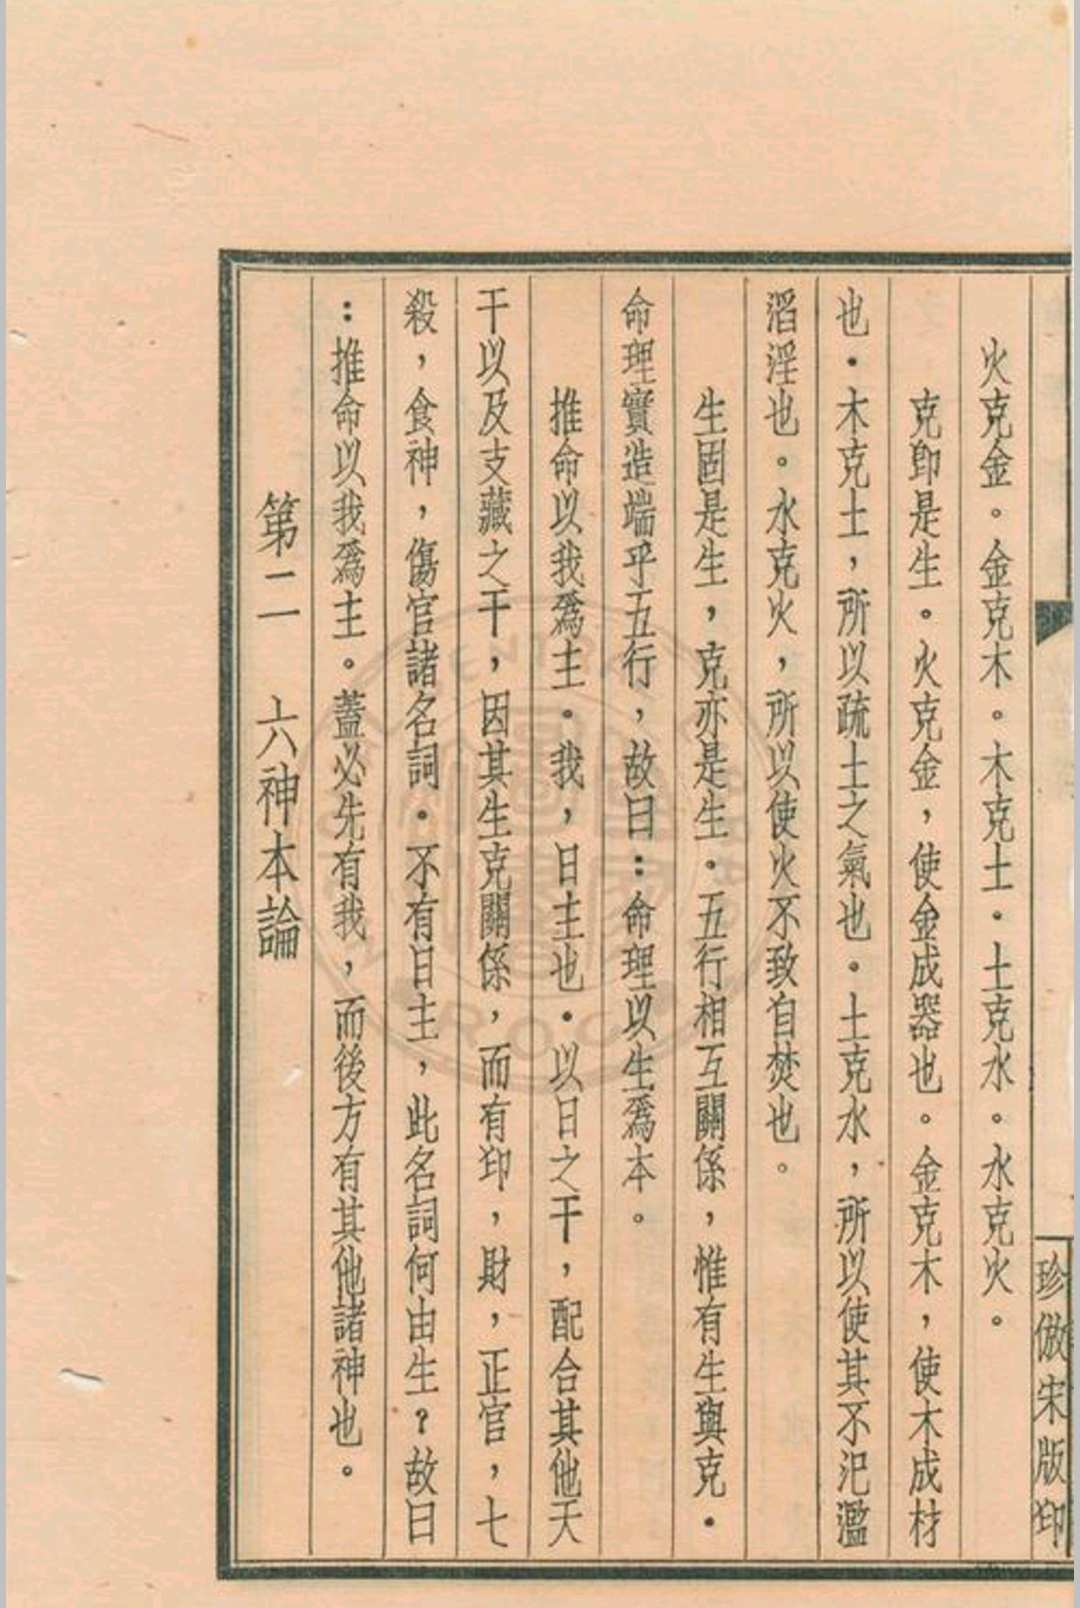 珍倣宋版印
火克金。金克木。木克土．土克水。水克火。
克卽是生。火克金，使金成器也。金克木，使木成材
也．木克土，所以疏土之氣也．土克水，所以使其不氾濫
滔淫也。水克火，所以使火不致自焚也。
生固是生，克亦是生．五行相互關係，惟有生與克．
命理實造端乎五行，故曰：命理以生爲本。
推命以我爲主．我，日主也．以日之干，配合其他天
干以及支藏之干，因其生克關係，而有印，財，正官，七
殺，食神，傷官諸名詞．不有日主，此名詞何由生？故曰
：推命以我爲主。蓋必先有我，而後方有其他諸神也。
第二 六神本論